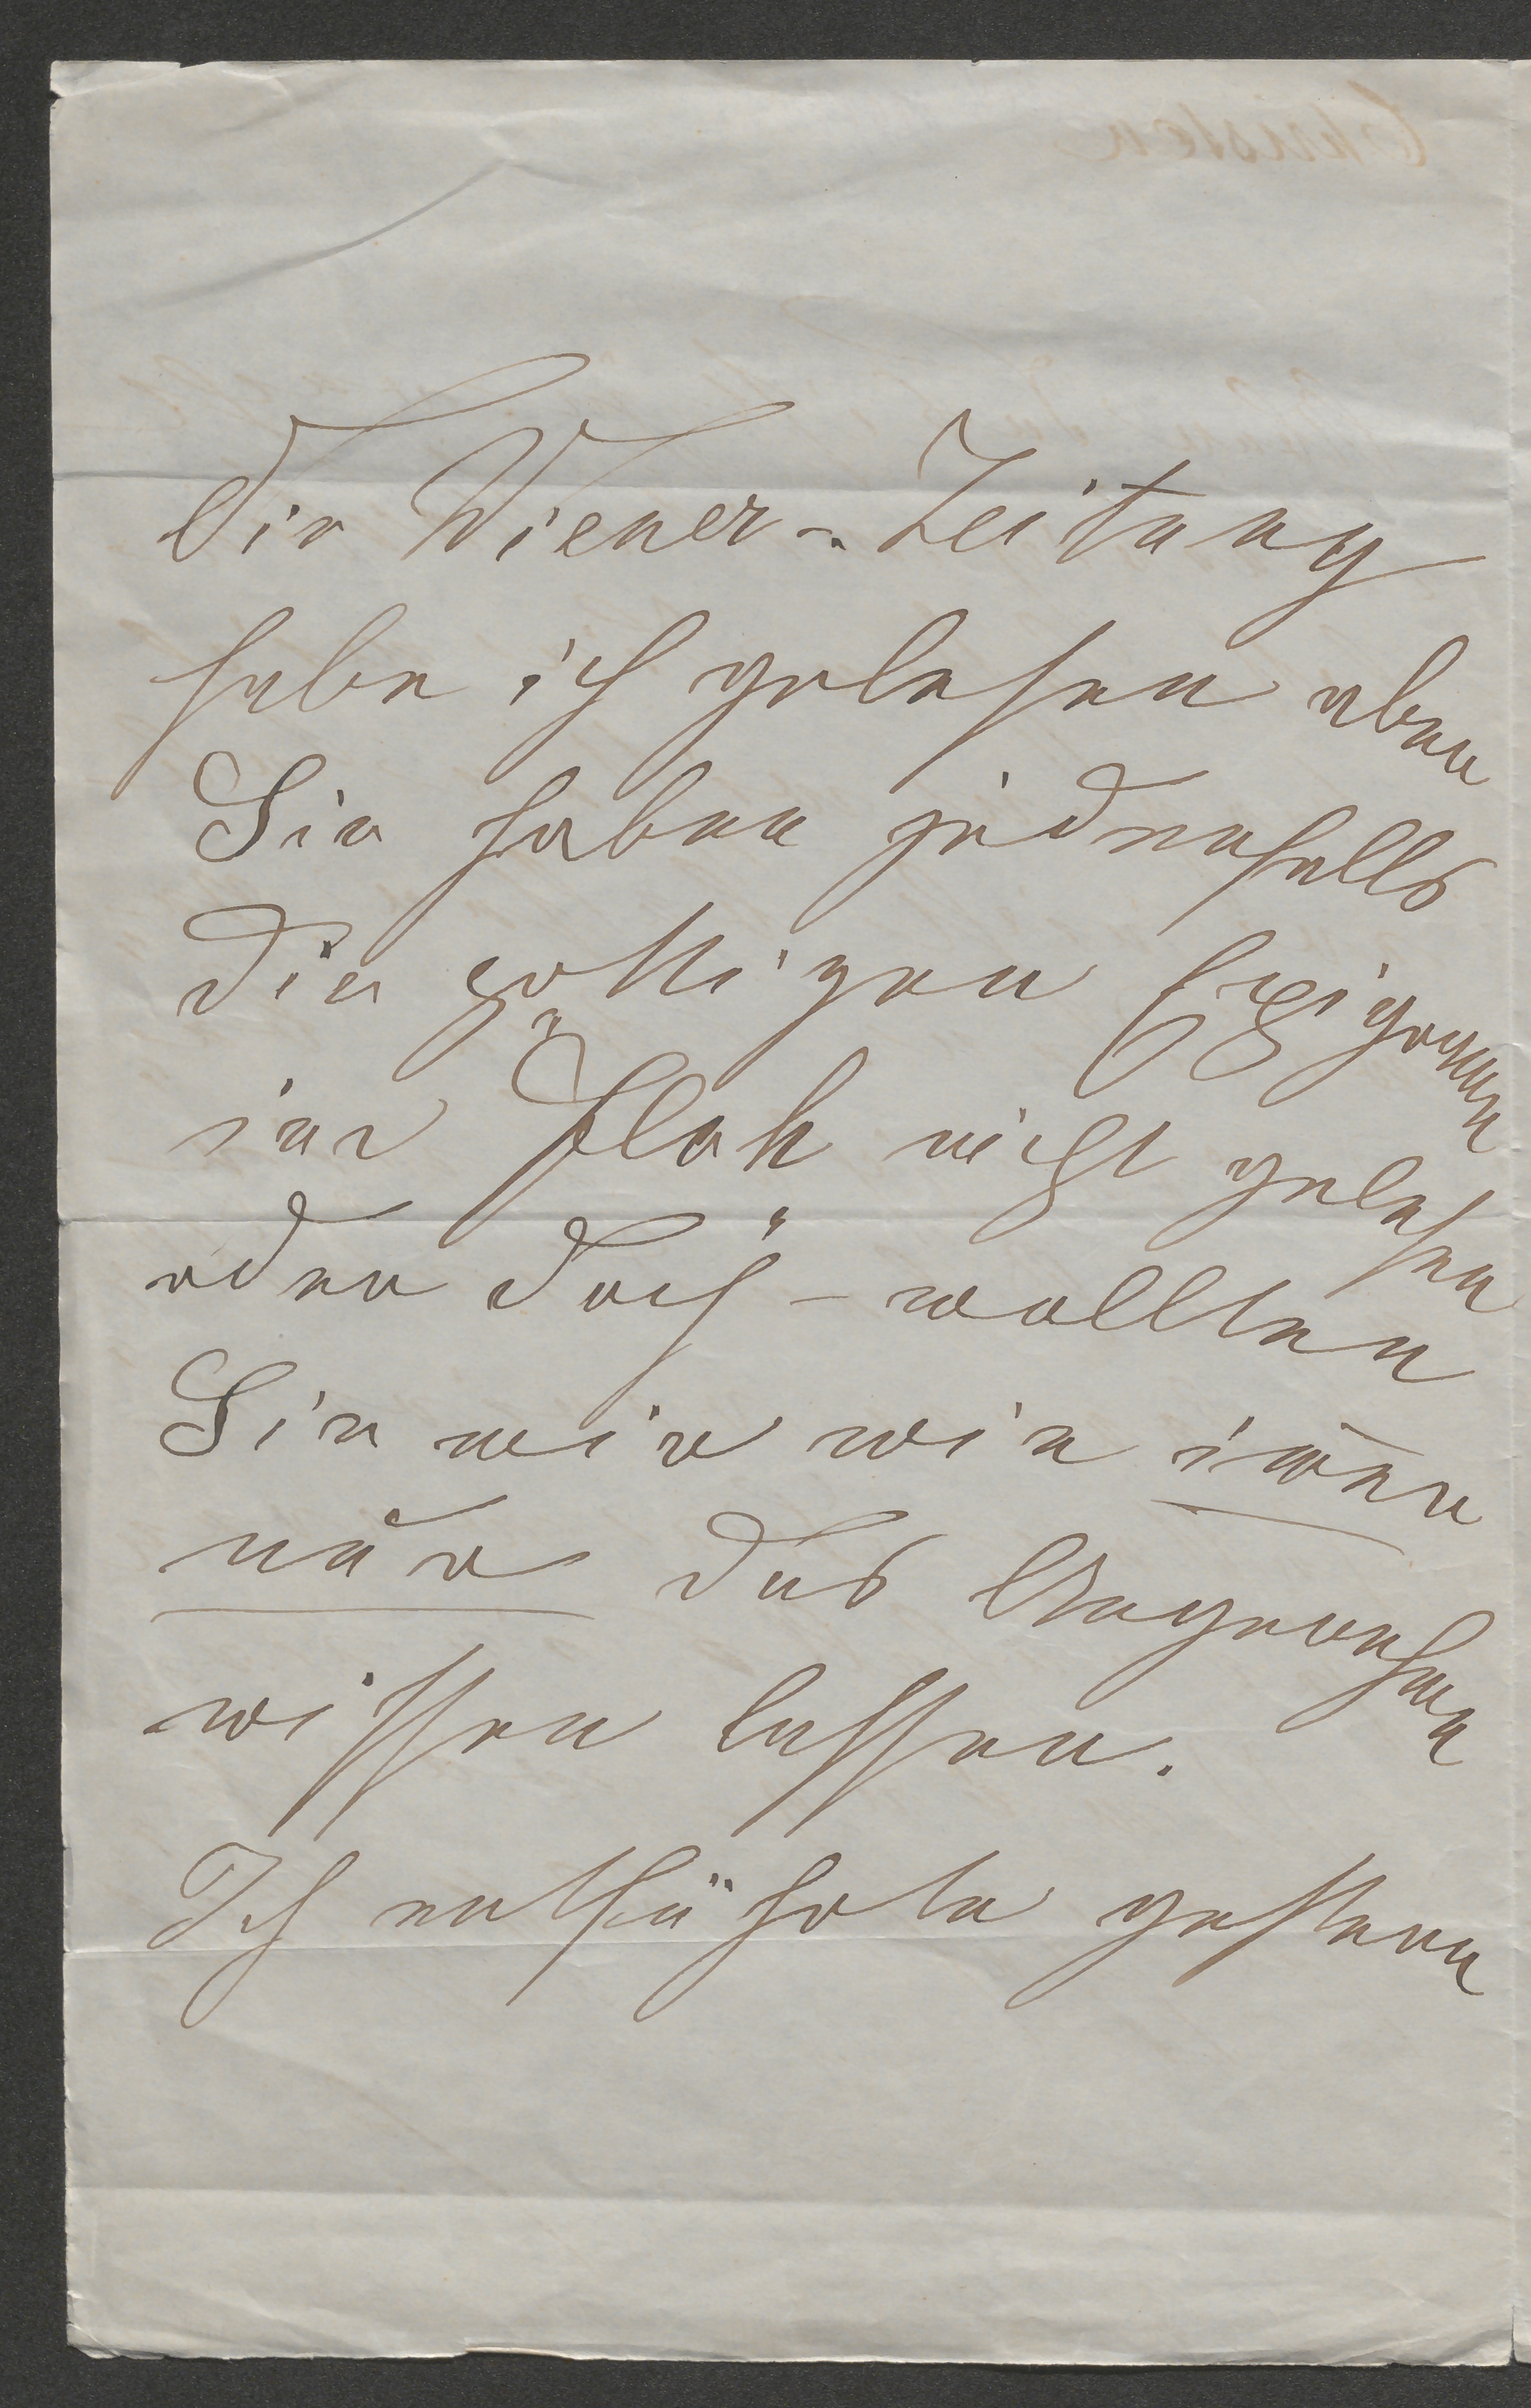 Christen
Die Wiener-Zeitung
habe ich gelesen aber
Sie haben jedenfalls
die zottigen
im „Floh“ nicht gelesen
oder doch – wollten
Sie mir wie im̅er
nur das Angenehme
wissen lassen.
Ich entführte gestern